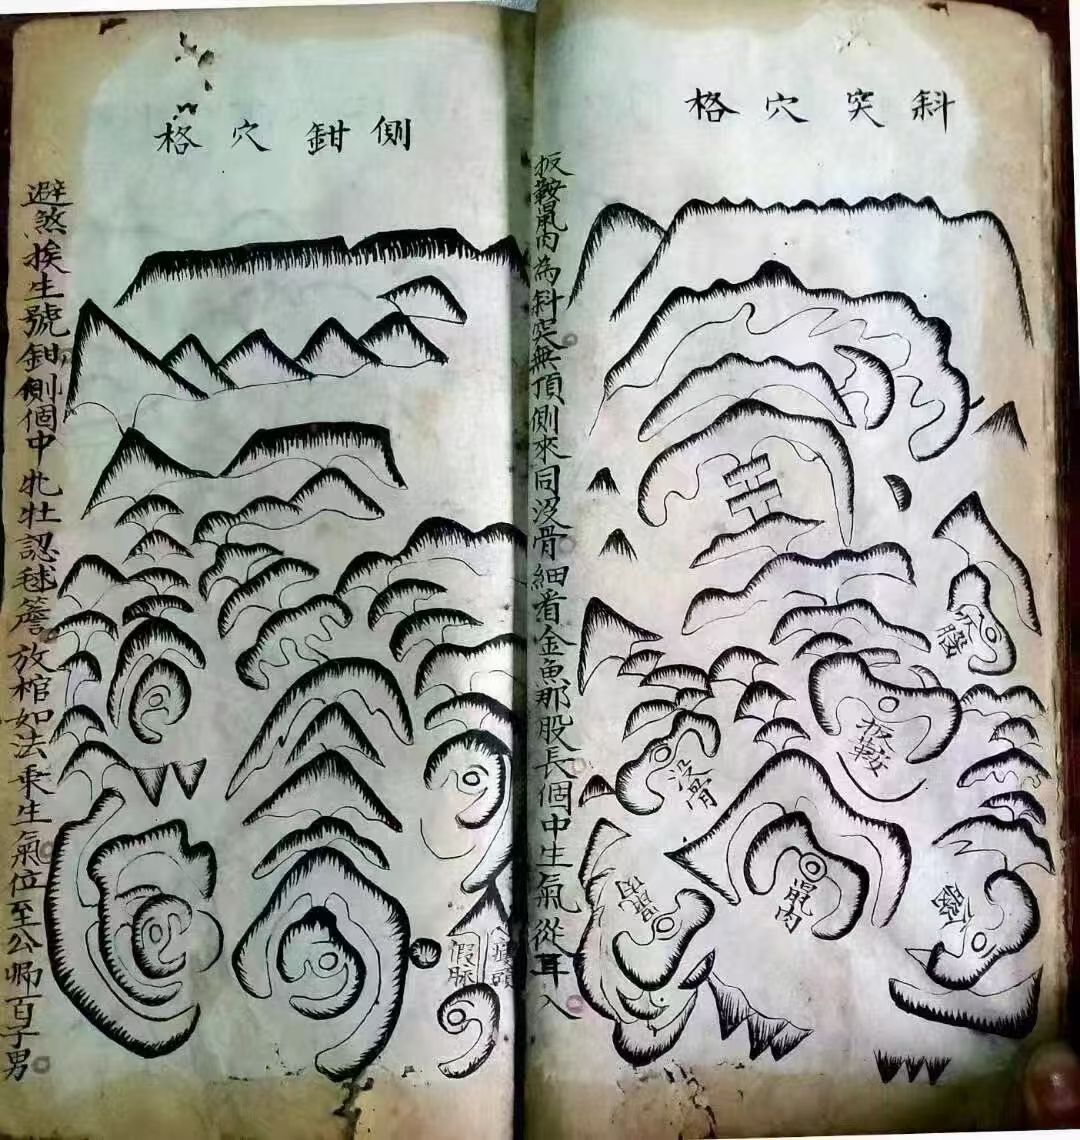 斜突穴格
扳鞍鼠肉為斜突無頂側來同沒骨細看金魚那股長個中生氣從耳入
扳鞍
沒骨
鼠肉
側鉗穴格
避煞挨生號鉗側個中牝牡認毬簷放棺如法乘生氣位至公卿百子男
假脈